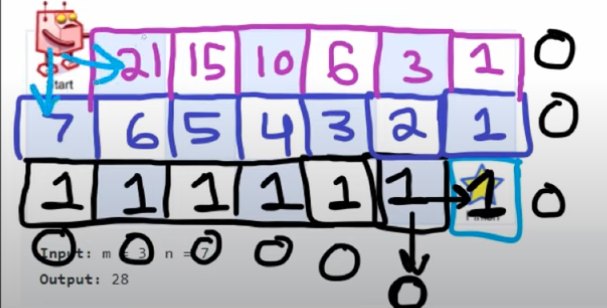 Start 21 15 10 6 3 1 0
7 6 5 4 3 2 1 0
1 1 1 1 1 1 1 0
0 0 0 0 0 0
Input: m = 3, n = 7
Output: 28